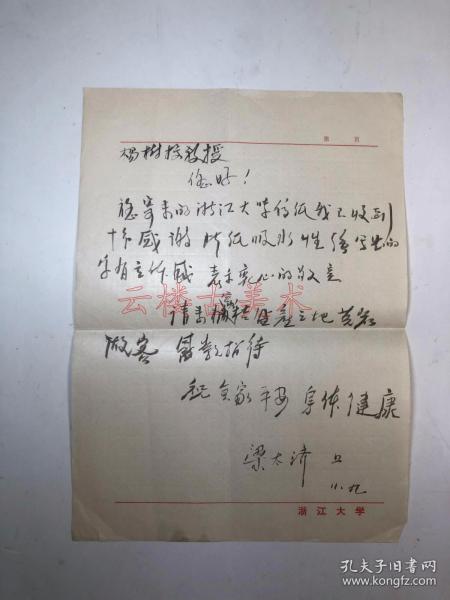 第 页
杨树标教授
您好！
您寄来的浙江大学信纸我已收到
十分感谢 此纸吸水性强写出的
字有立体感 表示衷心的敬意
请来
做客 盛款招待
祝 全家平安 身体健康
梁太济 上
小九
浙江大学
云楼古美术
孔夫子旧书网
www.kongfz.com